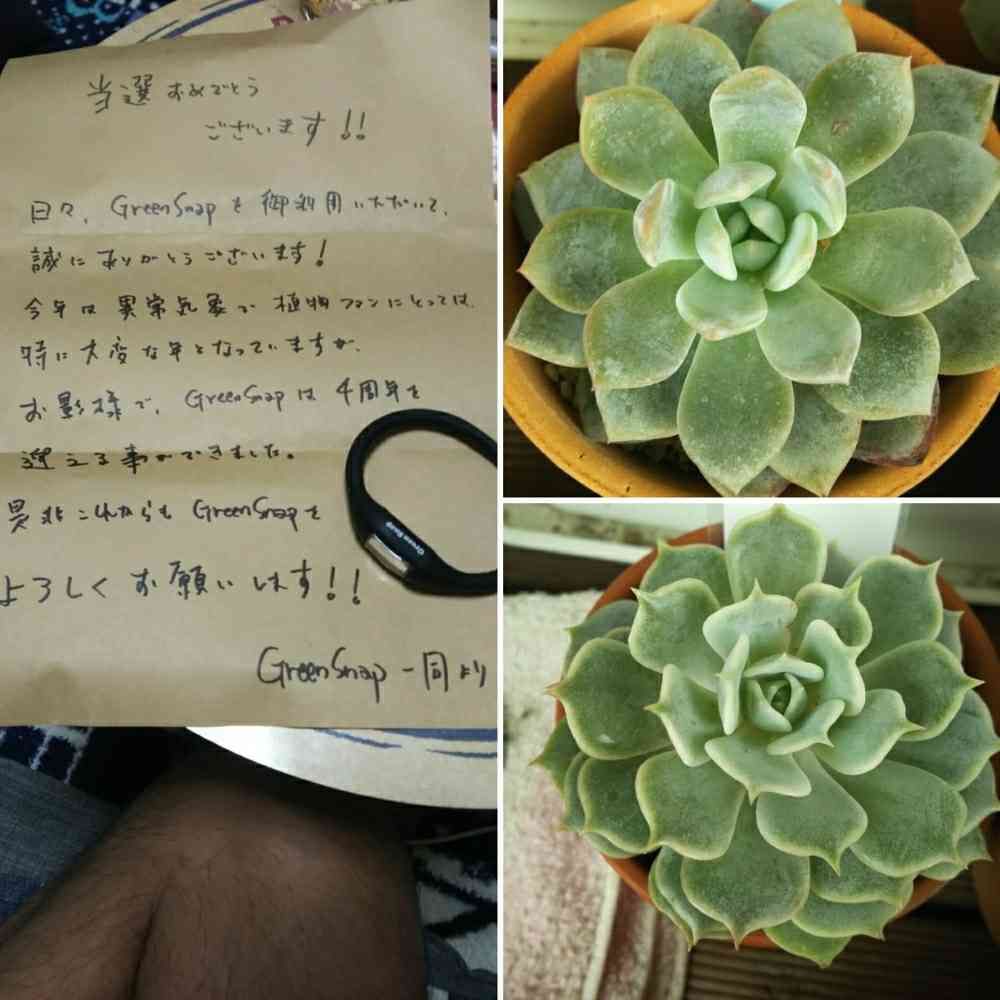 当選おめでとう
ございます!!
日々、GreenSnapを御利用いただいて、
誠にありがとうございます!
今年は異常気象で植物ファンにとっては、
特に大変な年となっていますが、
お影様で、GreenSnapは4周年を
迎える事ができました。
是非これからもGreenSnapを
よろしくお願いします!!
GreenSnap一同より
Green Snap